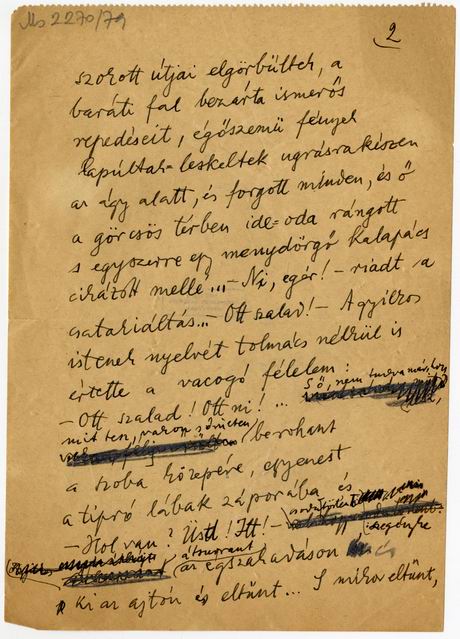 Ms 2270/79
2
szokott útjai elgörbültek, a
baráti fal bezárta ismerős
repedéseit, égőszemű fények
lapúltak-leskeltek ugrásrakészen
az ágy alatt, és forgott minden, és ő
a görcsös térben ide-oda rángott
s egyszerre egy menydörgő kalapács
cikázott mellé... – Ni, egér! – riadt a
csatakiáltás... – Ott szalad! – A gyilkos
istenek nyelvét tolmács nélkül is
értette a vacogó félelem:
– Ott szalad! Ott ni! ... S ő, nem tudva már, hogy
mit tesz, vakon
berohant
a szoba közepére, egyenest
a tipró lábak záporába és
– Hol van? Üsd! Itt! –
szegényke
átugrant
az égszakadáson
Ki az ajtón és eltünt... S mikor eltünt,